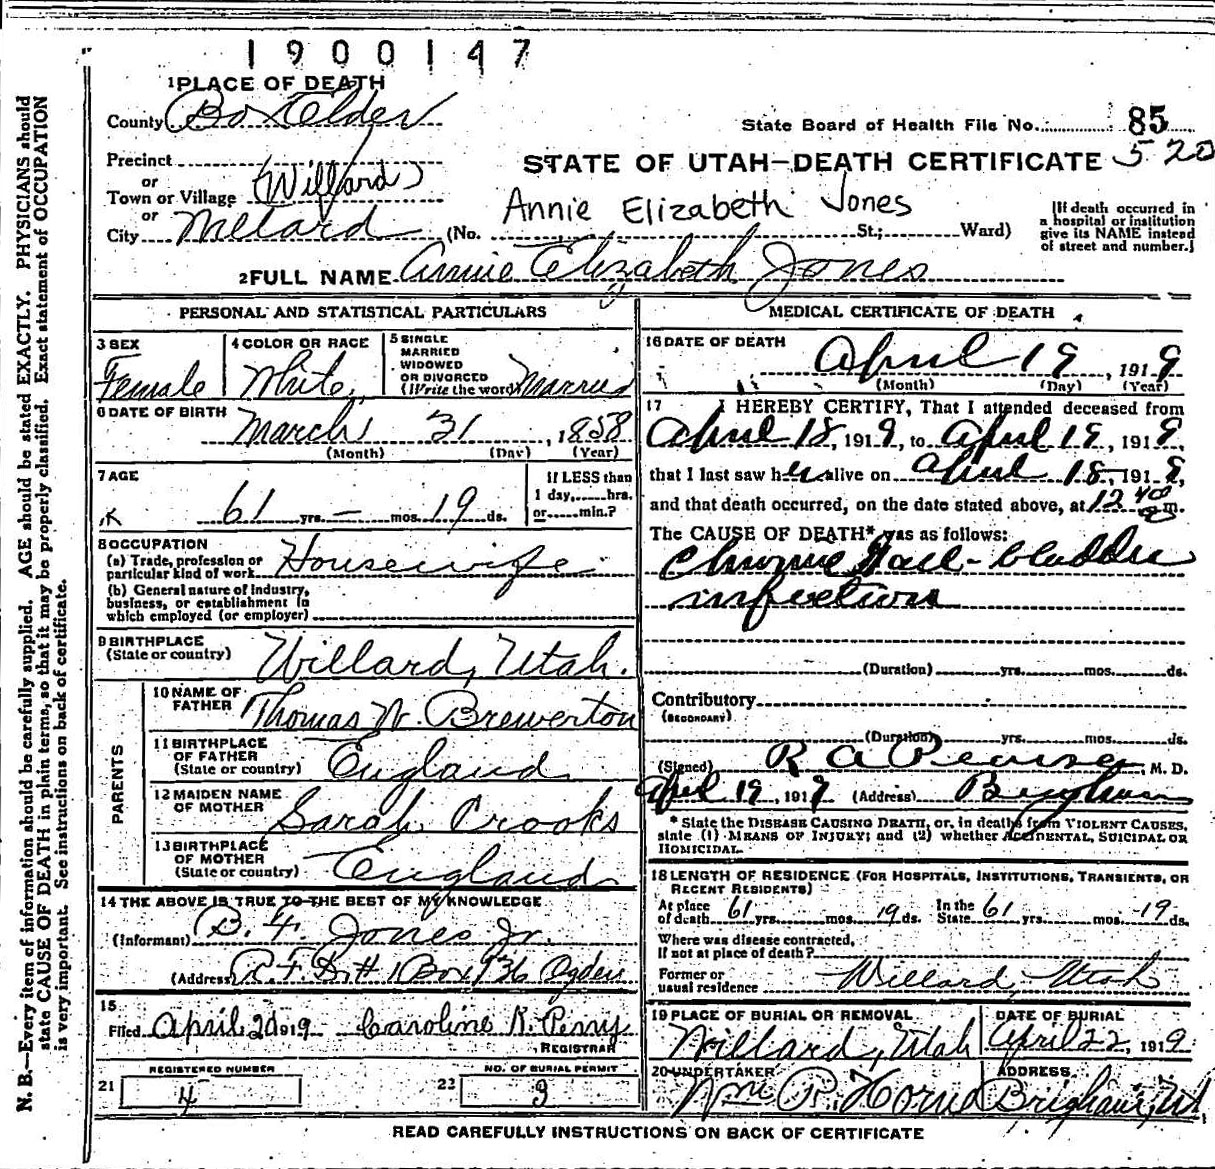 1900147
1 PLACE OF DEATH
County Box Elder
State Board of Health File No. 85
Precinct
STATE OF UTAH—DEATH CERTIFICATE 520
or
Town or Village (Willard)
or
City Willard (No. St.; Ward)
Annie Elizabeth Jones
[If death occurred in
a hospital or institution
give its NAME instead
of street and number.]
2 FULL NAME Annie Elizabeth Jones
PERSONAL AND STATISTICAL PARTICULARS
3 SEX
Female
4 COLOR OR RACE
White
5 SINGLE
MARRIED
WIDOWED
OR DIVORCED
(Write the word) Married
6 DATE OF BIRTH
March 31, 1858
(Month) (Day) (Year)
7 AGE
61 yrs. — mos. 19 ds.
If LESS than
1 day,......hrs.
or......min.?
8 OCCUPATION
(a) Trade, profession or
particular kind of work Housewife
(b) General nature of industry,
business, or establishment in
which employed (or employer)
9 BIRTHPLACE
(State or country) Willard, Utah.
PARENTS
10 NAME OF
FATHER Thomas W. Brewerton
11 BIRTHPLACE
OF FATHER
(State or country) England
12 MAIDEN NAME
OF MOTHER Sarah Crooks
13 BIRTHPLACE
OF MOTHER
(State or country) England
14 THE ABOVE IS TRUE TO THE BEST OF MY KNOWLEDGE
(Informant) B. F. Jones Jr.
(Address) R.F.D. #1 Box 936 Ogden
15
Filed April 20 1919 Caroline N. Perry
REGISTRAR
REGISTERED NUMBER
21 4
NO. OF BURIAL PERMIT
22 3
MEDICAL CERTIFICATE OF DEATH
16 DATE OF DEATH
April 19, 1919
(Month) (Day) (Year)
17 I HEREBY CERTIFY, That I attended deceased from
April 18, 1919, to April 19, 1919,
that I last saw her alive on April 18, 1919,
and that death occurred, on the date stated above, at 12 40 a m.
The CAUSE OF DEATH* was as follows:
Chronic Gall-bladder
infection
(Duration) yrs. mos. ds.
Contributory
(SECONDARY)
(Duration) yrs. mos. ds.
(Signed) R A Pearse, M. D.
April 19, 1919 (Address) Brigham
* State the DISEASE CAUSING DEATH, or, in deaths from VIOLENT CAUSES,
state (1) MEANS OF INJURY; and (2) whether ACCIDENTAL, SUICIDAL OR
HOMICIDAL.
18 LENGTH OF RESIDENCE (FOR HOSPITALS, INSTITUTIONS, TRANSIENTS, OR
RECENT RESIDENTS)
At place
of death 61 yrs. mos. 19 ds.
In the
State 61 yrs. mos. 19 ds.
Where was disease contracted,
If not at place of death?
Former or
usual residence Willard, Utah
19 PLACE OF BURIAL OR REMOVAL
Willard, Utah
DATE OF BURIAL
April 22, 1919
20 UNDERTAKER
Wm P. Horne
ADDRESS
Brigham, Ut
READ CAREFULLY INSTRUCTIONS ON BACK OF CERTIFICATE
N. B.—Every item of information should be carefully supplied. AGE should be stated EXACTLY. PHYSICIANS should
state CAUSE OF DEATH in plain terms, so that it may be properly classified. Exact statement of OCCUPATION
is very important. See instructions on back of certificate.